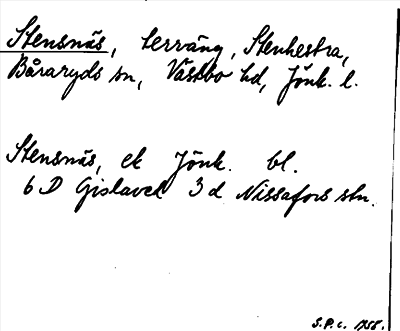 Stensnäs, terräng, Stenhestra,
Båraryds sn, Västbo hd, Jönk. l.
Stensnäs, ek Jönk. bl.
6 D Gislaved 3 d Nissafors stn.
S.P.c. 1955.